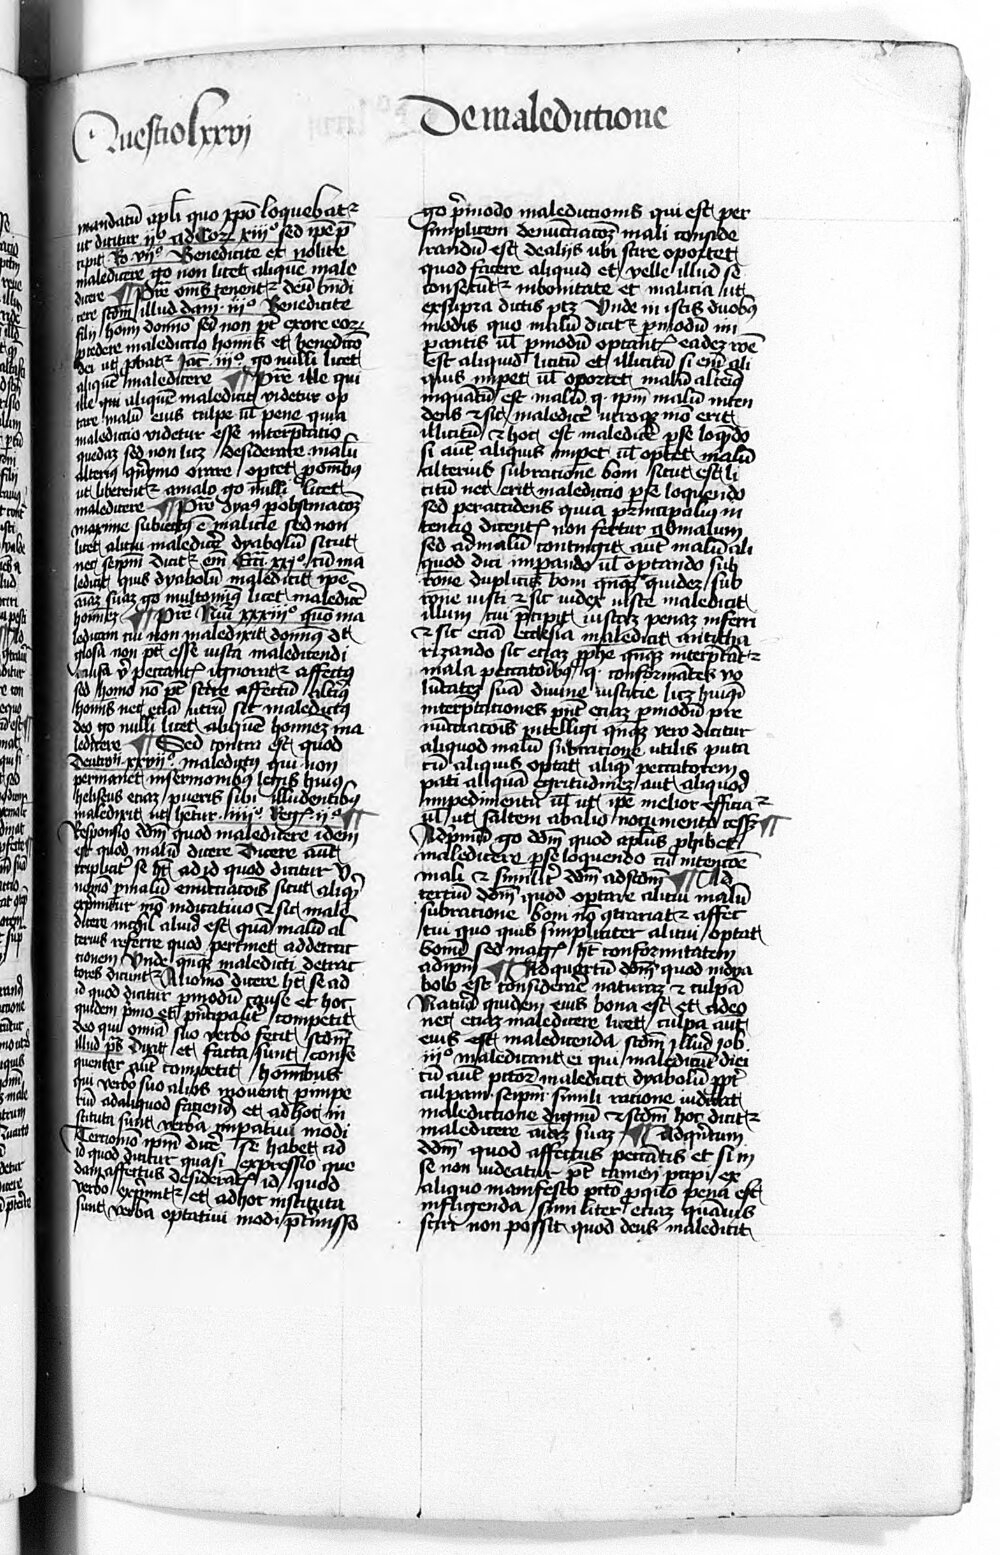 Questio lxxvi
De maledictione
mandatū apl̄i quo xpō loquebat᷑
ut dicitur ijº ad Cor xiijº sed ipe p̄
cipit Ro vijº Benedicite et nolite
maledicere go non licet alique male
dicere ¶ Pre om̄s tenent᷑ deū bn̄di
cere scdm̄ illud dani iijº Benedicite
filij hom̄ domīo sed non pt̄ ex ore eoꝝ
p̄cedere maledictio homīs et benedictō
dei ut ꝓbat᷑ Jac iijº go nulli licet
aliquē maledicere ¶ Pre ille qui
ille qui aliquem maledicit videtur op
tare malū eius culpe ul̄ pene quia
maledictio videtur esse interp̄tatio
quedaꝫ sed non licꝫ desiderare malū
alterius qn̄ymo orare oportet pro omībus
ut liberent᷑ a malo go nulli licet
maledicere ¶ Pre dyabꝰ p obstinacōꝫ
maxime subiectꝰ ē malicie sed non
licet alicui maledicere dyabolū sicut
nec seipm̄ Dicit᷑ em̄ Ecci xxjº cū ma
ledicit ipius dyabolū maledicit ipe
aīaꝫ suaꝫ go multomiꝰ licet maledicere
homineꝫ ¶ Pre Nūi xxxiijº quō ma
ledicam cui non maledixit domnꝰ dt̄
glosa non pt̄ esse iusta maledicendi
causa ubi peccantis ignorat᷑ affectꝰ
sed homo nō pt̄ scire affectū altiꝰ
homīs nec etiā utrū sit maledictꝰ
deo go nulli licet aliquē hominem ma
ledicere ¶ Sed contra est quod
Deutroij xxvijº maledictꝰ qui non
permanet in sermonibus legis huiꝰ
heliseus etiaꝫ pueris sibi illudentibꝰ
maledixit ut habetur iiijº Reg ijº ¶
Responsio dōm quod maledicere idem
est quod malū dicere Dicere aūt
tripliciter se ht̄ ad id quod dicitur Uº
nomō p malū enūciacois sicut aliqͥd
exprimitur mō indicatiuo et sic male
dicere nichil aliud est quā malū al
terius referre quod pertinet ad detrac
tionem Unde qn̄qꝫ maledici detrac
tores dicunt᷑ Aliomō dicere ht̄ se ad
id quod dicitur p modū cause et hoc
quidem pͥmo et prīcipalit̄ competit
deo qui omnia suo verbo fecit scdm̄
illud ps Dixit et facta sunt conse
quenter aūt competit hominibus
qui verbo suo alios movent p impe
riū ad aliquod faciendū et ad hoc in
stituta sunt verba impatiui modi
Terciomō ipm̄ dice se habet ad
id quod dicitur quasi expressio que
dam affectus desiderat id quod
verbo exprimit᷑ et ad hoc instituta
sunt verba optatiui modi p̄tmisso
go pͥmo modo maledictionis qui est per
simplicem denūciacoꝫ mali conside
randū est de alijs ubi scire oportet
quod facere aliquid et velle illud se
consecūt᷑ in bonitate et malicia ut
ex supra dictis ptꝫ Unde in istis duobꝰ
modis quo malū dicit᷑ p modū im
pantis ul̄ p modū optantis eadeꝫ rōe
est aliquid licitū et illicitū si enī ali
quis impet ul̄ optet malū alterius
inquātū est malū qͥ ipm̄ malū inten
dens et sic maledice utroqꝫ mō erit
illicitū et hoc est maledice p se loqn̄do
si aūt aliquis impet ul̄ optet malū
alterius sub ratione boni sicut est li
citū nec erit maledictio p se loquendo
sed per accidens quia principalis in
tencio dicentis non fertur ad malum
sed ad malū contingit aūt malū ali
quod dici impando ul̄ optando sub
rōne duplicis boni qn̄qꝫ quidez sub
rōne iusti et sic iudex iuste maledicit
illum cui pͥcipit iustaꝫ penaꝫ inferri
et sic etiā ecclesia maledicit anathe
tizando sic etiaꝫ pphe qn̄qꝫ interp̄tāt᷑
mala peccatoribꝰ qͥ conformātes vo
lūtateꝫ suā diuine iusticie licꝫ huiꝰi
interp̄tationes pn̄t etiaꝫ p modū pre
nūtciacois intelligi qn̄qꝫ vero dicitur
aliquod malū sub ratione utilis puta
cū aliquis optat aliqͥ peccatorem
pati aliquā egritudineꝫ aut aliquod
impedimentū ul̄ ut ipe melior efficia᷑
ul̄ ut saltem ab alio nocumento cesset ¶
Ad pͥmū go dōm quod aplūs phibet
maledicere p se loquendo cū intencōe
mali et similit̄ dōm ad scdm̄ ¶ Ad
terciū dōm quod optare alicui malū
sub ratione boni nō ꝯtrariat᷑ affec
tui quo quis simpliciter alicui optat
bonū sed magis ht̄ conformitatem
ad ipm̄ ¶ Ad quartū dōm quod in dya
bolo est considerare naturaꝫ et culpā
Natura quidem eius bona est et a deo
nec etiaꝫ maledicere licet culpa aūt
eius est maledicenda scdm̄ illud iob
iijº maledicant ei qui maledicūt diei
cū aūt pctor maledicit dyabolū ꝓpt̄
culpam seipm̄ simili ratione iudicat
maledictione dignū et scdm̄ hoc dicit᷑
maledicere aīaꝫ suaꝫ ¶ Ad quintum
dōm quod affectus peccātis et si in
se non videatur pt̄ tamen pcipi ex
aliquo manifesto pctō p quo pena est
infligenda similiter etiaꝫ quāuis
scire non possit quod deus maledicit